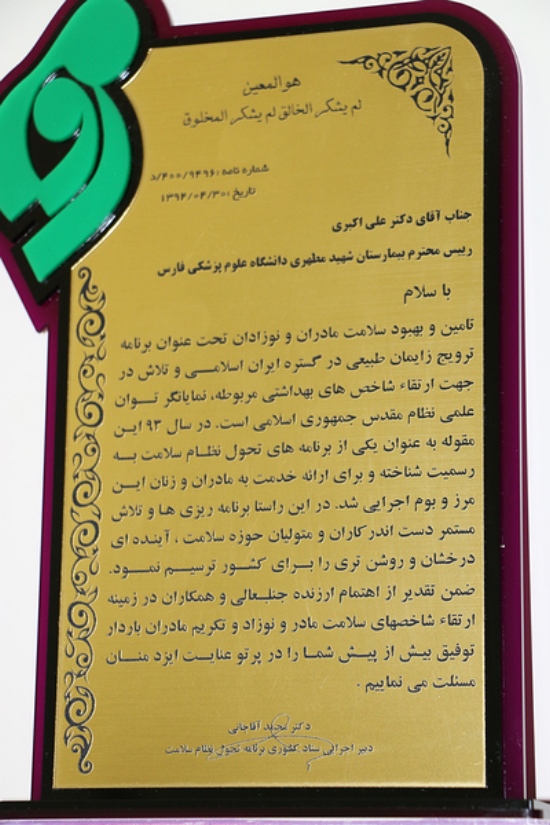 هو المعین
لم یشکر الخالق لم یشکر المخلوق
شماره نامه :۴۰۰/۹۴۹۶/د
تاریخ :۱۳۹۴/۰۴/۳۰
جناب آقای دکتر علی اکبری
رییس محترم بیمارستان شهید مطهری دانشگاه علوم پزشکی فارس
با سلام
تامین و بهبود سلامت مادران و نوزادان تحت عنوان برنامه
ترویج زایمان طبیعی در گستره ایران اسلامـــی و تلاش در
جهت ارتقاء شاخص های بهداشتی مربوطه، نمایانگر تــوان
علمی نظام مقدس جمهوری اسلامی است. در سال ۹۳ ایـن
مقوله به عنوان یکی از برنامه های تحول نظـام سلامت بـه
رسمیت شناخته و برای ارائه خدمت به مادران و زنان ایـن
مرز و بوم اجرایی شد. در این راستا برنامه ریزی ها و تلاش
مستمر دست اندرکاران و متولیان حوزه سلامت ، آینـده ای
درخشان و روشن تری را بــرای کشـور ترسیــم نمــود.
ضمن تقدیر از اهتمام ارزنده جنابعالی و همکاران در زمینه
ارتقاء شاخصهای سلامت مادر و نوزاد و تکریم مادران باردار
توفیق بیش از پیش شمـا را در پرتو عنایت ایزد منــان
مسئلت می نماییم .
دکتر محمد آقاجانی
دبیر اجرایی ستاد کشوری برنامه تحول نظام سلامت